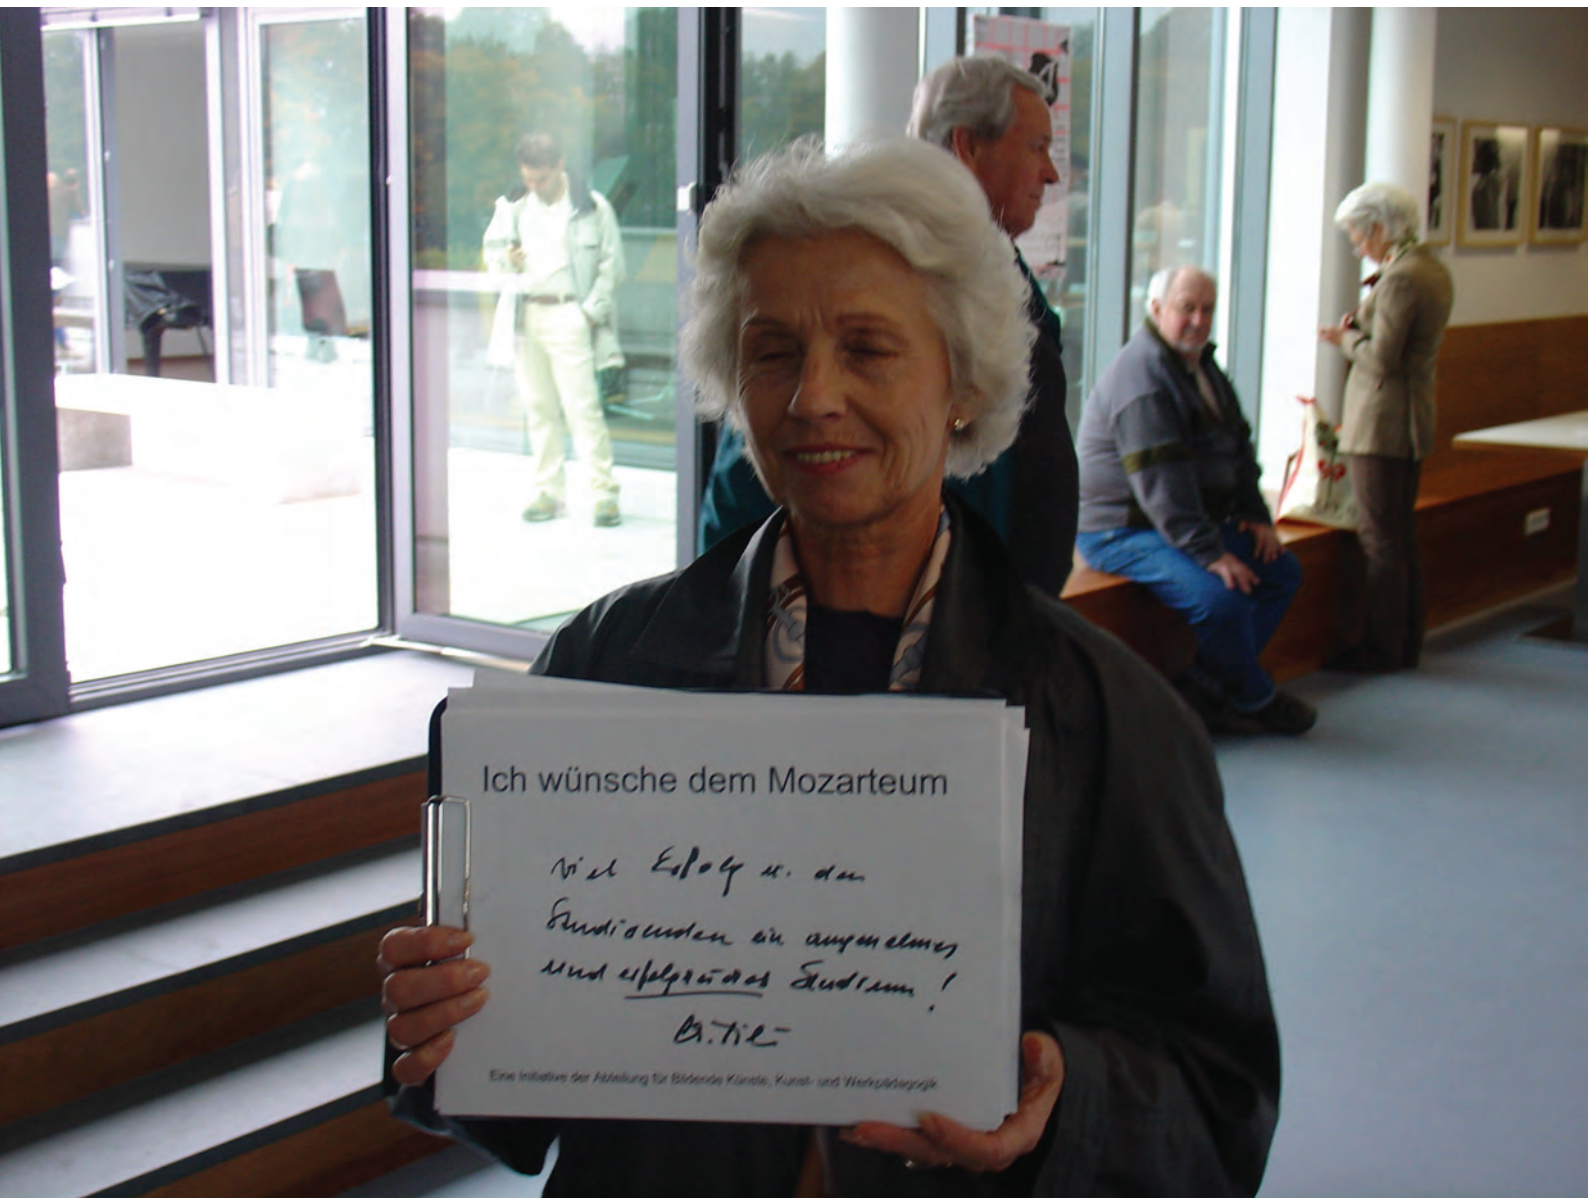 Ich wünsche dem Mozarteum
viel Erfolg u. den
Studierenden ein angenehmes
und erfolgreiches Studium!
Eine Initiative der Abteilung für Bildende Künste, Kunst- und Werkpädagogik